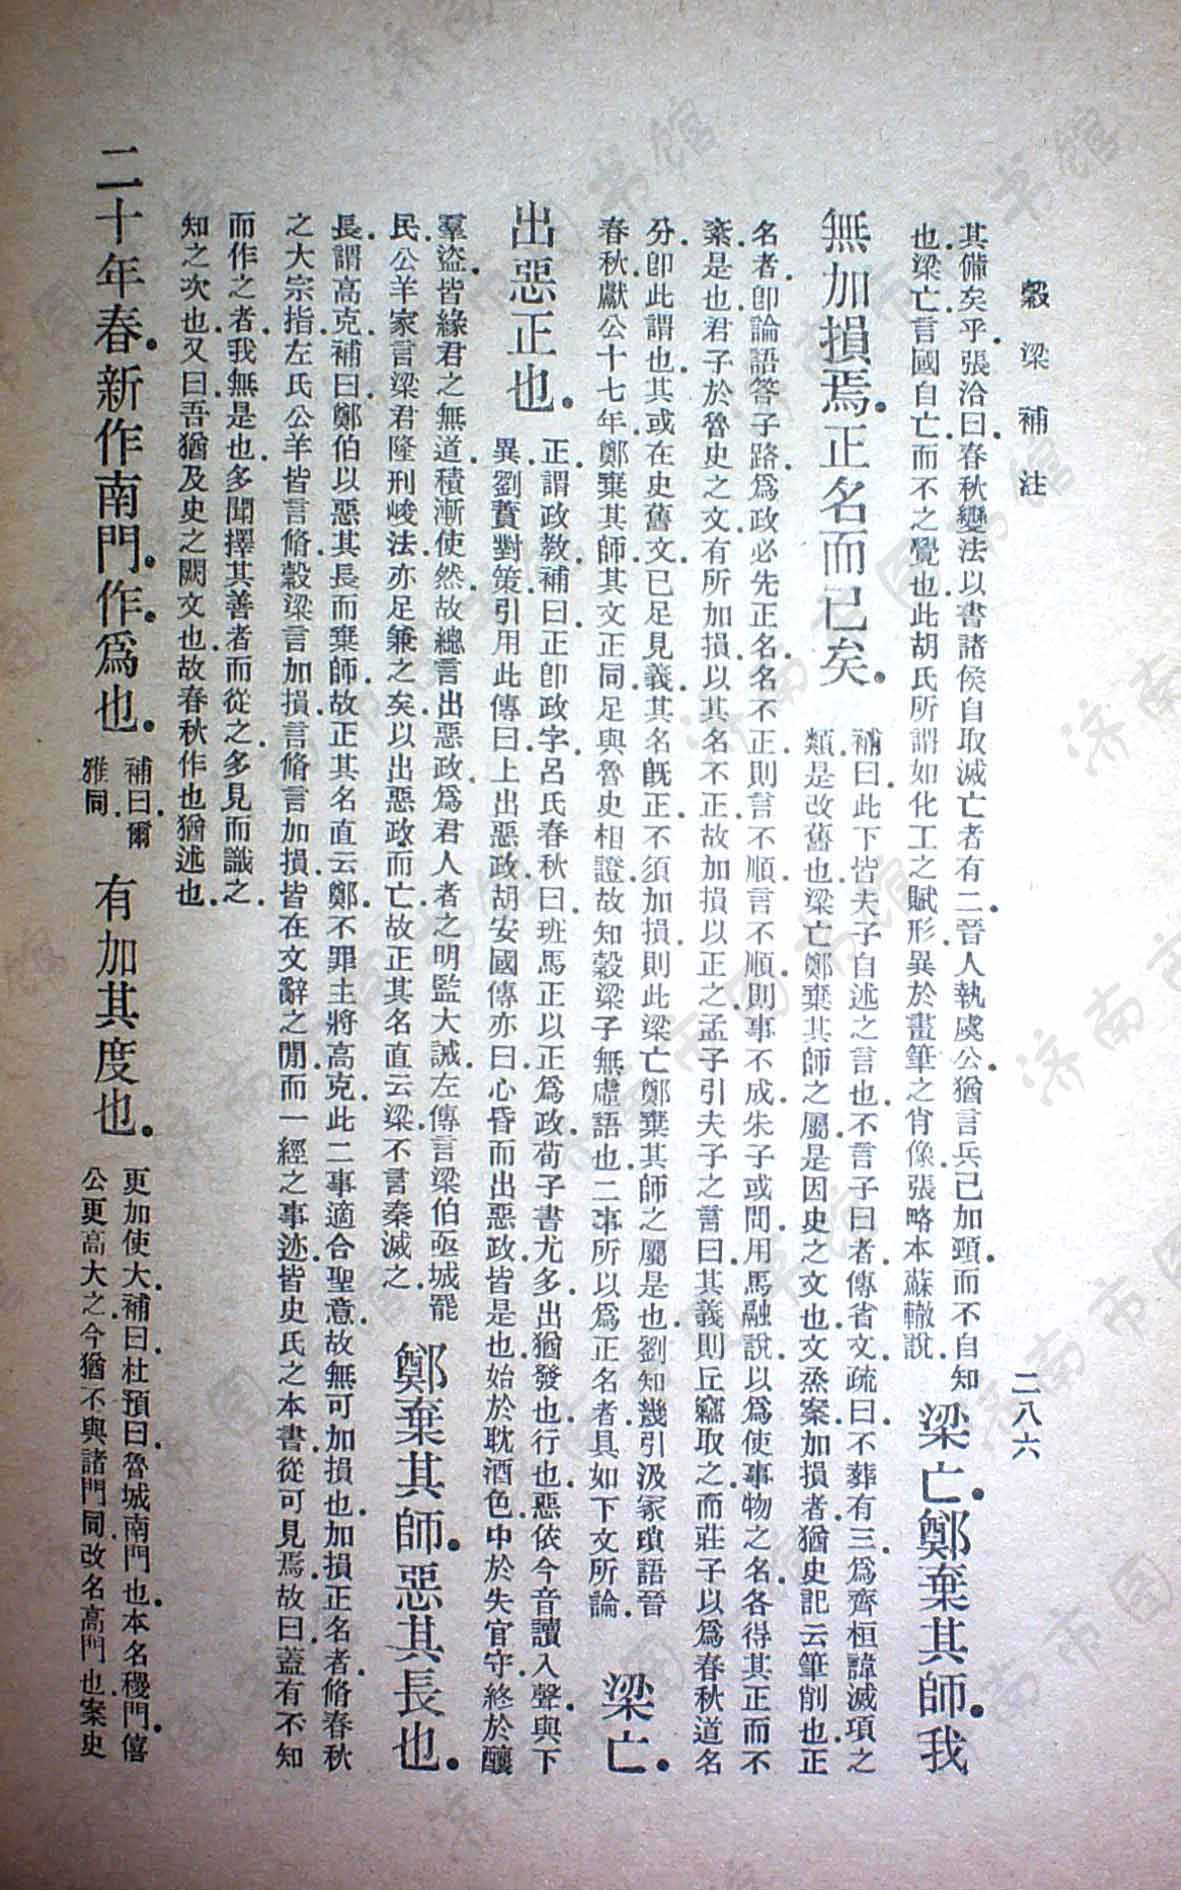 穀梁補注
二八六
其備矣乎張洽曰春秋變法以書諸侯自取滅亡者有二晉人執虞公猶言兵已加頸而不自知
也梁亡言國自亡而不之覺也此胡氏所謂如化工之賦形異於畫筆之肖像張略本蘇轍說
梁亡鄭棄其師我
無加損焉正名而已矣
補曰此下皆夫子自述之言也不言子曰者傳省文疏曰不葬有三為齊桓諱滅項之
類是改舊也梁亡鄭棄其師之屬是因史之文也文烝案加損者猶史記云筆削也正
名者卽論語答子路為政必先正名名不正則言不順言不順則事不成朱子或問用馬融說以為使事物之名各得其正而不
紊是也君子於魯史之文有所加損以其名不正故加損以正之孟子引夫子之言曰其義則丘竊取之而莊子以為春秋道名
分卽此謂也其或在史舊文已足見義其名旣正不須加損則此梁亡鄭棄其師之屬是也劉知幾引汲冢瑣語晉
春秋獻公十七年鄭棄其師其文正同足與魯史相證故知穀梁子無虛語也二事所以為正名者具如下文所論
梁亡
出惡正也
正謂政教補曰正卽政字呂氏春秋曰班馬正以正為政荀子書尤多出猶發也行也惡依今音讀入聲與下
異劉蕡對策引用此傳曰上出惡政胡安國傳亦曰心昏而出惡政皆是也始於耽酒色中於失官守終於釀
羣盜皆緣君之無道積漸使然故總言出惡政為君人者之明監大誡左傳言梁伯亟城罷
民公羊家言梁君隆刑峻法亦足兼之矣以出惡政而亡故正其名直云梁不言秦滅之
鄭棄其師惡其長也
長謂高克補曰鄭伯以惡其長而棄師故正其名直云鄭不罪主將高克此二事適合聖意故無可加損也加損正名者脩春秋
之大宗指左氏公羊皆言脩穀梁言加損言脩言加損皆在文辭之閒而一經之事迹皆史氏之本書從可見焉故曰蓋有不知
而作之者我無是也多聞擇其善者而從之多見而識之
知之次也又曰吾猶及史之闕文也故春秋作也猶述也
二十年春新作南門作為也
補曰爾
雅同
有加其度也
更加使大補曰杜預曰魯城南門也本名稷門僖
公更高大之今猶不與諸門同改名高門也案史